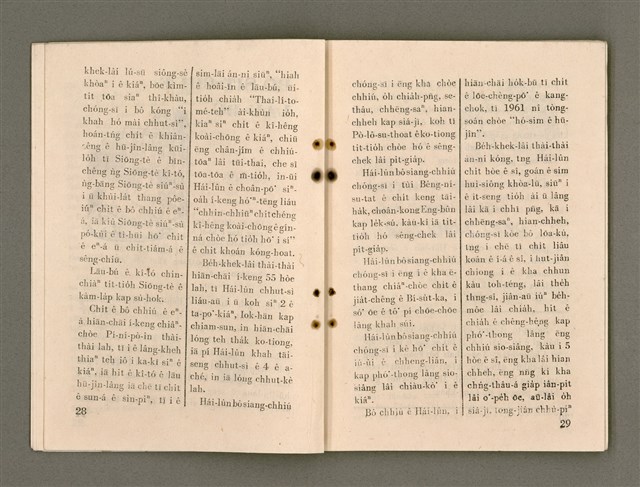 khek-lâi lú-sū siōng-sè
khòaⁿ i ê kiáⁿ, bōe kìm-
tit tōa siaⁿ thî-khàu,
chóng-sī i bô kóng “i
khah hó mài chhut-sì”,
hoán-tńg chit ê khiân-
sêng ê hū-jîn-lâng kūi-
lo̍h tī Siōng-tè ê bīn-
chêng ǹg Siōng-tè kî-tó,
ǹg-bāng Siōng-tè siúⁿ-sù
i ū khùi-la̍t thang pōe-
iúⁿ chit ê bô chhiú ê eⁿ-
á, iā kiû Siōng-tè siúⁿ-sù
pó-kùi ê tì-hūi hō͘ chit
ê eⁿ-á ū chit-tiām-á ê
sêng-chiū.
Lāu-bú ê kî-tó chin-
chiàⁿ tit-tio̍h Siōng-tè ê
kàm-la̍p kap sù-hok.
Chit ê bô chhiú ê eⁿ-
á hiān-chāi í-keng chiâⁿ-
chòe Pi-ní-pó-in thài-
thài lah, tī i ê lâng-kheh
thiaⁿ teh iō i ka-kī siⁿ ê
kiáⁿ, iā hit ê kî-tó ê lāu
hū-jîn-lâng iā chē tī chit
ê sun-á ê sin-piⁿ, tī i ê
28
sim-lāi án-ni siūⁿ, “hiah
ê hoâi-īn ê lāu-bú, ūi-
tio̍h chiah “Thai-li-to-
mé-teh” ài-khùn io̍h,
kiaⁿ siⁿ chit ê kî-hêng
koài-chōng ê kiáⁿ, chiū
ēng chân-jím ê chhiú-
tōaⁿ lâi tūi-thai, che sī
tōa-tōa ê m̄-tio̍h, in-ūi
Hái-lûn ê choân-pō͘ siⁿ-
oa̍h í-keng hō͘ⁿ-têng liáu
“chhin-chhiūⁿ chit chéng
kî-hêng koài-chōng ê gín-
ná chòe hó tio̍h hō͘ i sí”
ê chit khoán kóng-hoat.
Be̍h-khek-lâi thài-thài
hiān-chāi í-keng 55 hòe
lah, tī Hái-lûn chhut-sì
liáu-āu i ū koh siⁿ 2 ê
ta-po͘-kiáⁿ, Io̍k-hān kap
chiam-sun, in hiān-chāi
lóng teh tha̍k ko-tiong,
iā pí Hái-lûn khah tāi-
seng chhut-sì ê 4 ê a-
ché, in iā lóng chhut-kè
lah.
Hái-lûn bô siang-chhiú
chóng-sī i ēng kha chòe
chhiú, o̍h chia̍h-pn̄g, se-
thâu, chhēng-saⁿ, hian-
chheh kap siá-jī, koh tī
Pò-lô-su-thoat ê ko-tiong
tit-tio̍h chòe hó ê sêng-
chek lâi pit-gia̍p.
Hái-lûn bô siang-chhiú
chóng-sī i tùi Bêng-nī-
su-tat ê chit keng tāi-
ha̍k, choân-kong Eng-bûn
kap le̍k-sú, kàu-kî iā tit-
tio̍h hó sêng-chek lâi
pit-gia̍p.
Hái-lûn bô siang-chhiú
chóng-sī i ēng i ê kha ê-
thang chiâⁿ-chòe chit ê
jia̍t-chêng ê Bí-su̍t-ka, i
só͘ ōe ê tô͘ pī chōe-chōe
lâng khah súi.
Hái-lûn bô siang-chhiú
chóng-sī i kè hō͘ chit ê
iú-ûi ê chheng-liân, i
kap phó͘-thong lâng sio-
siāng lâi chiàu-kò͘ i ê
kiáⁿ.
Bô chhiú ê Hái-lûn, i
hiān-chāi ho̍k-bū tī chit
ê lōe-chèng-pō͘ ê kang-
chok, tī 1961 nî tòng-
soán chòe “hò-sim ê hū-
jîn”.
Be̍h-khek-lâi thài-thài
án-ni kóng, tng Hái-lûn
chit hòe ê sî, goán ê sim
hui-siông khòa-lū, siūⁿ i
ê it-seng tio̍h ài ū lâng
lâi kā i chhī pn̄g, kā i
chhēng-saⁿ, hian-chheh,
chóng-sī kòe bô lōa-kú,
tng i chē tī chit liâu
koân ê í-á ê sî, i hut-jiân
chiong i ê kha chhun
kàu toh-téng, lâi the̍h
thn̂g-sî, jiân-āu iúⁿ be̍h-
môe lâi chia̍h, hit ê
chia̍h ê chêng-hêng kap
phó͘-thong lâng êng
sio-siāng, kàu i 5
hòe ê sî, ēng kha lâi hian
chheh, ēng nn̄g ki kha
chńg-thâu-á gia̍p iân-pit
lâi o̍͘-pe̍h ōe, aū-lâi o̍h
siá-jī, tong-jiân chhú-piⁿ
29